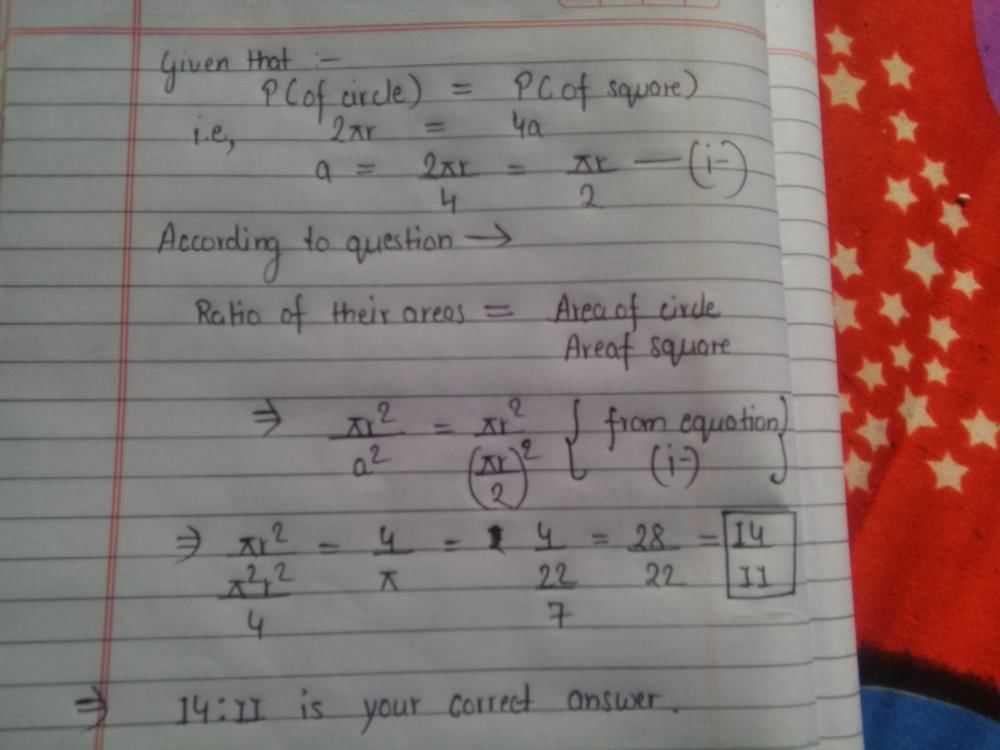 Given that :-
P(of circle) = P(of square)
i.e, 2πr = 4a
a = 2πr/4 = πr/2 — (i-)
According to question →
Ratio of their areas = Area of circle
Areaf square
⇒ πr²/a² = πr²/(πr/2)² { from equation (i-) }
⇒ πr²/(π²r²/4) = 4/π = 4/(22/7) = 28/22 = 14/11
⇒ 14:11 is your correct answer.